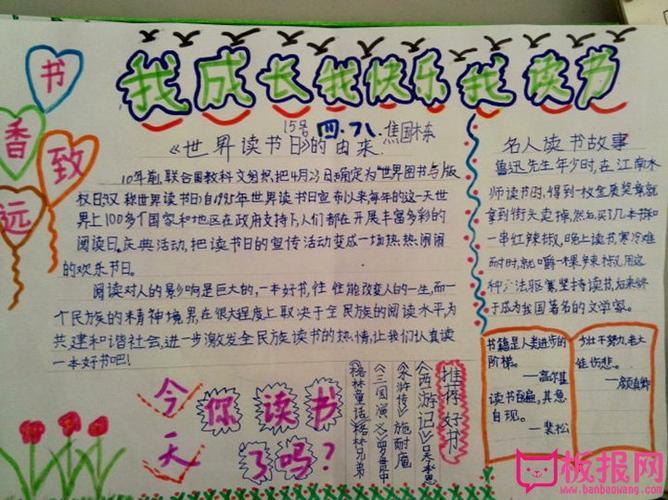 我成长我快乐我读书
书香致远
15号 四.7八 焦国栋
《世界读书日》的由来
10年前,联合国教科文组织,把4月23日确定为“世界图书与版
权日,又称世界读书日,自1995年世界读书日宣布以来,每年的这一天世
界上100多个国家和地区在政府支持下,人们都在开展丰富多彩的
阅读日庆典活动,把读书日的宣传活动变成一场热热闹闹
的欢乐节日。
阅读对人的影响是巨大的,一本好书,往往能改变人的一生,而一
个民族的精神境界,在很大程度上取决于全民族的阅读水平,为
共建和谐社会,进一步激发全民族读书的热情,让我们认真读
一本好书吧!
名人读书故事
鲁迅先生年少时,在江南水
师读书,得到一枚金质奖章就
拿到街头卖掉,然后买了几本书和
一串红辣椒,晚上读书寒冷难
耐时,就嚼一果辣椒,用这
种方法驱寒坚持读书,后来终
于成为我国著名的文学家。
书籍是人类进步的
阶梯。
——高尔基
读书百遍,其意
自现。
——裴松
少壮不努力,老大
徒伤悲。
今天
你读书
了吗?
推荐好书
《西游记》吴承恩
《水浒传》施耐庵
《三国演义》罗贯中
《格林童话》格林兄弟
板报网
www.banbaowang.com